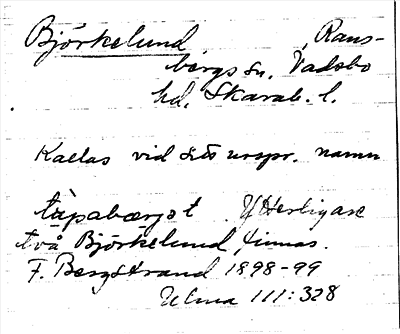 Björkelund Rans-
bergs sn. Vadsbo
hd. Skarab. l.
Kallas vid sitt urspr. namn
tàpabærjet Ytterligare
två Björkelund finnas.
F. Bergstrand 1898-99
Ulma 111:328